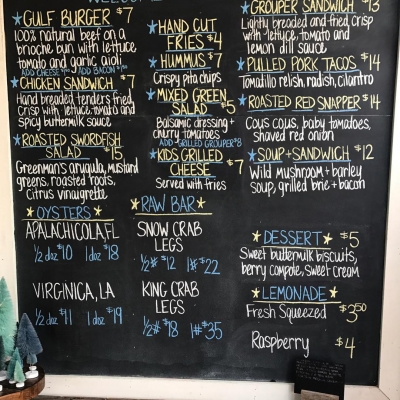 GULF BURGER $7
100% natural beef on a
brioche bun with lettuce
tomato and garlic aioli
ADD CHEESE $1.00 ADD BACON $1.00
CHICKEN SANDWICH $7
Hand breaded tenders fried,
Crisp w/ lettuce, tomato and
Spicy buttermilk sauce
ROASTED SWORDFISH
SALAD $15
Greenman's arugula, mustard
greens, roasted roots,
Citrus vinaigrette
OYSTERS
APALACHICOLA, FL
1/2 doz $10 1 doz $18
VIRGINICA, LA
1/2 doz $11 1 doz $19
HAND CUT
FRIES $4
HUMMUS $7
Crispy pita chips
MIXED GREEN
SALAD $5
Balsamic dressing +
cherry tomatoes
ADD GRILLED GROUPER $8
KIDS GRILLED
CHEESE $7
Served with fries
RAW BAR
SNOW CRAB
LEGS
1/2# $12 1# $22
KING CRAB
LEGS
1/2# $18 1# $35
GROUPER SANDWICH $13
Lightly breaded and fried, crisp
with lettuce, tomato and
lemon dill sauce
PULLED PORK TACOS $14
Tomatillo relish, radish, cilantro
ROASTED RED SNAPPER $14
Cous cous, baby tomatoes,
shaved red onion
SOUP + SANDWICH $12
Wild mushroom + barley
soup, grilled brie + bacon
DESSERT $5
Sweet buttermilk biscuits,
berry compote, sweet cream
LEMONADE
Fresh Squeezed $3.50
Raspberry $4